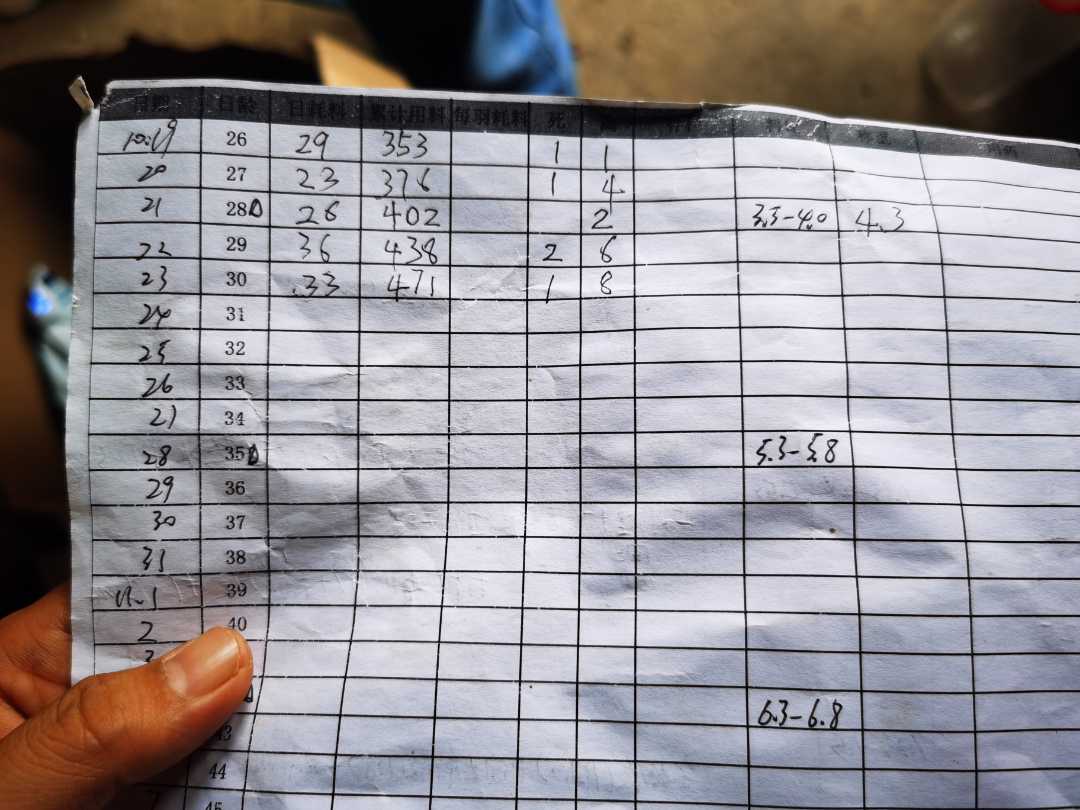 日期 日龄 日耗料 累计用料 每羽耗料 死
10.19 26 29 353 1 1
20 27 23 376 1 4
21 28 26 402 2 3.5-4.0 4.3
22 29 36 438 2 6
23 30 33 471 1 8
24 31
25 32
26 33
27 34
28 35 5.3-5.8
29 36
30 37
31 38
11.1 39
2 40
3
6.3-6.8
43
44
45